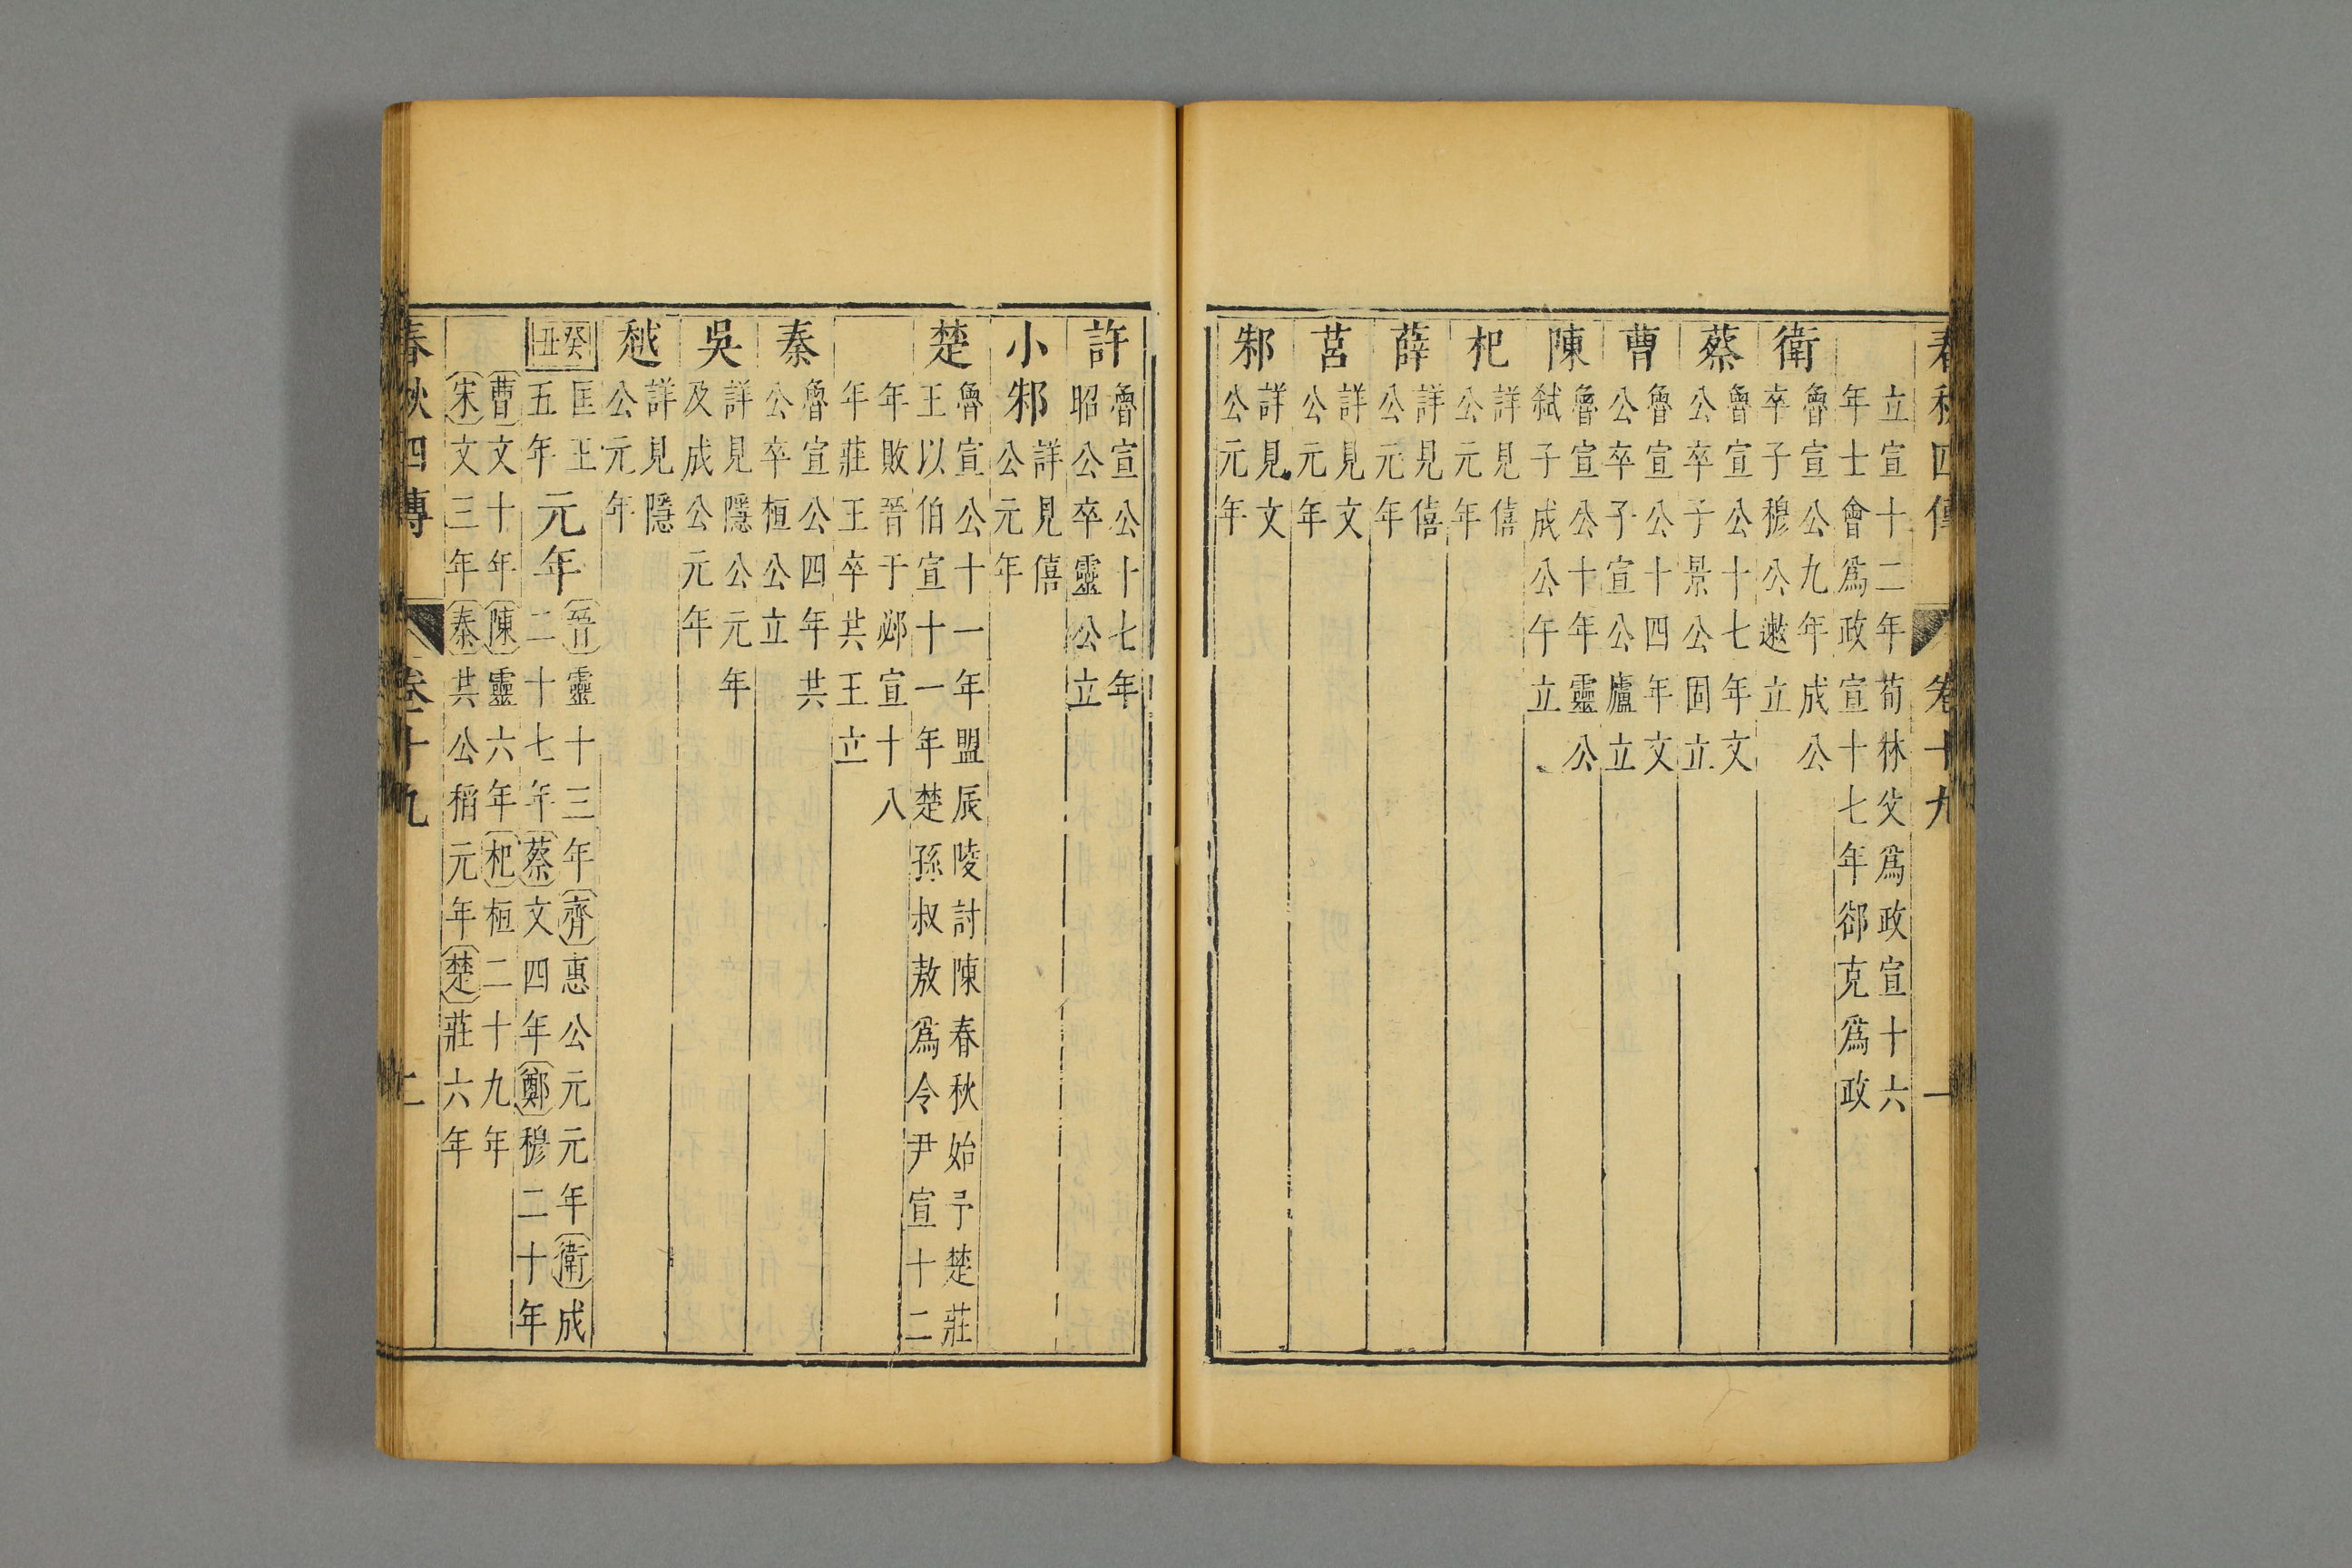 春秋四傳 卷十九 一
立宣十二年荀林父爲政宣十六
年士會爲政宣十七年郤克爲政
衛
魯宣公九年成公
卒子穆公遬立
蔡
魯宣公十七年文
公卒子景公固立
曹
魯宣公十四年文
公卒子宣公廬立
陳
魯宣公十年靈公
弒子成公午立
杞
詳見僖
公元年
薛
詳見僖
公元年
莒
詳見文
公元年
邾
詳見文
公元年
許
魯宣公十七年
昭公卒靈公立
小邾
詳見僖
公元年
楚
魯宣公十一年盟辰陵討陳春秋始予楚莊
王以伯宣十一年楚孫叔敖爲令尹宣十二
年敗晉于邲宣十八
年莊王卒共王立
秦
魯宣公四年共
公卒桓公立
吳
詳見隱公元年
及成公元年
越
詳見隱
公元年
癸丑
匡王
五年
元年
晉靈十三年齊惠公元元年衛成
二十七年蔡文四年鄭穆二十年
曹文十年陳靈六年杞桓二十九年
宋文三年秦共公稻元年楚莊六年
春秋四傳 卷十九 二